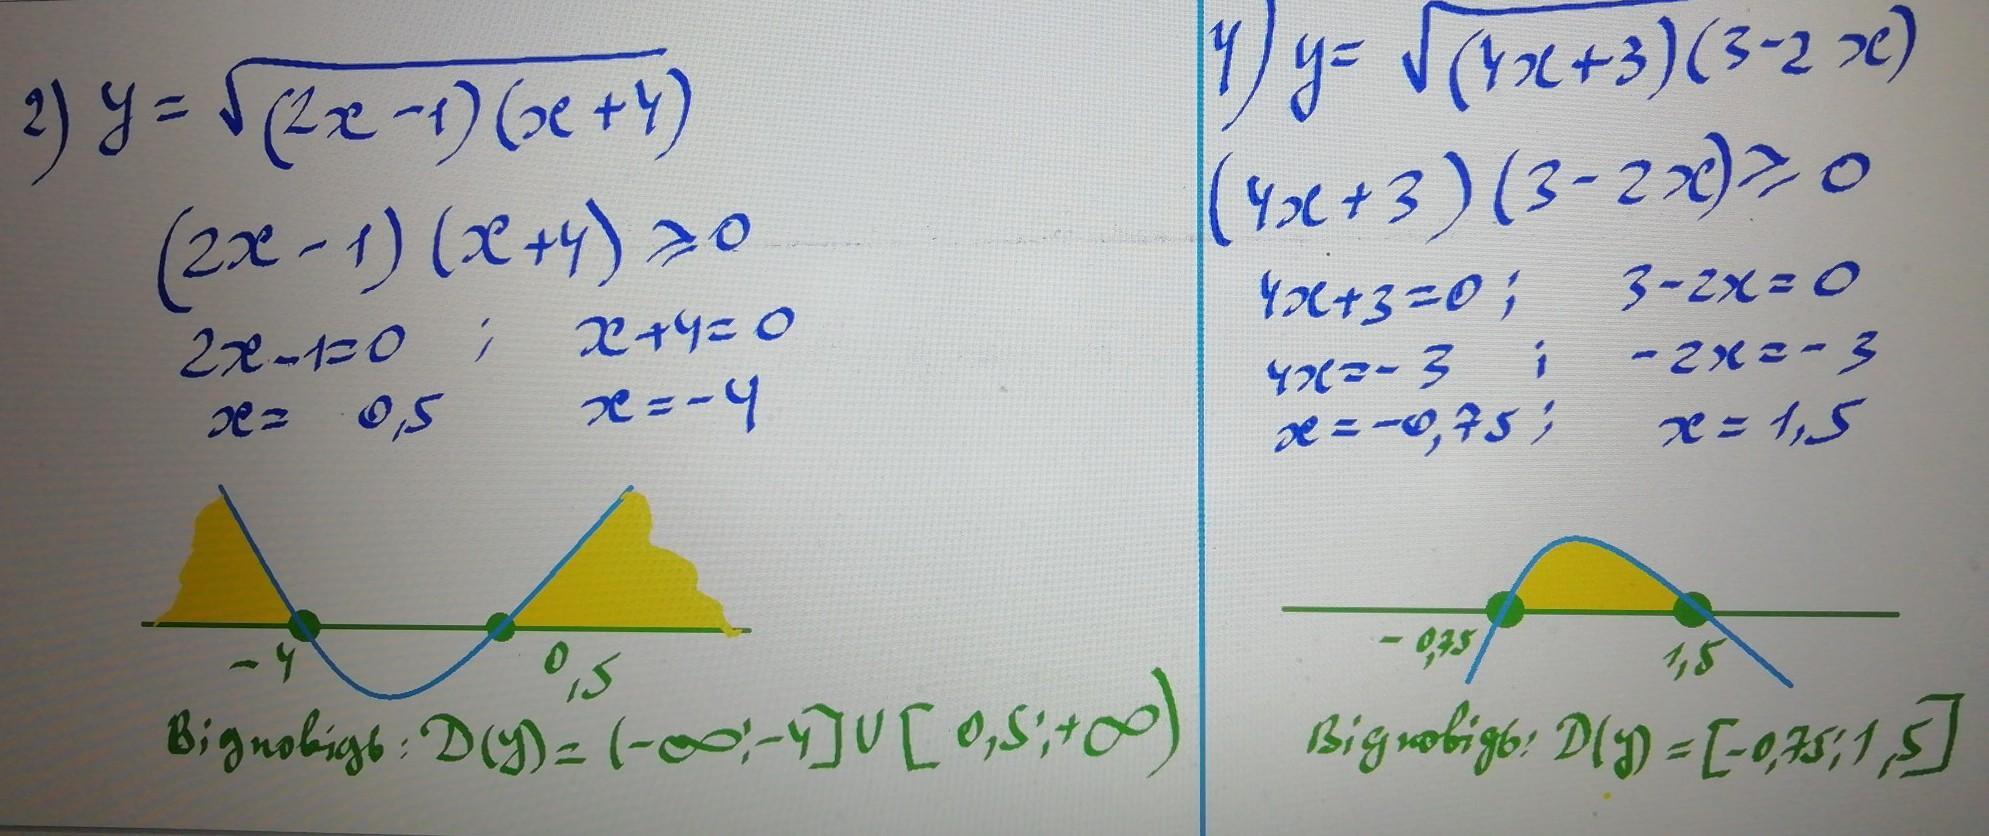 2) y = √(2x-1)(x+4)
(2x-1)(x+4) ⩾ 0
2x-1=0 ; x+4=0
x= 0,5 x=-4
-4 0,5
Відповідь: D(y)= (-∞;-4]∪[ 0,5;+∞)
4) y= √(4x+3)(3-2x)
(4x+3)(3-2x)⩾0
4x+3=0; 3-2x=0
4x=-3 ; -2x=-3
x=-0,75; x=1,5
-0,75 1,5
Відповідь: D(y)=[-0,75;1,5]